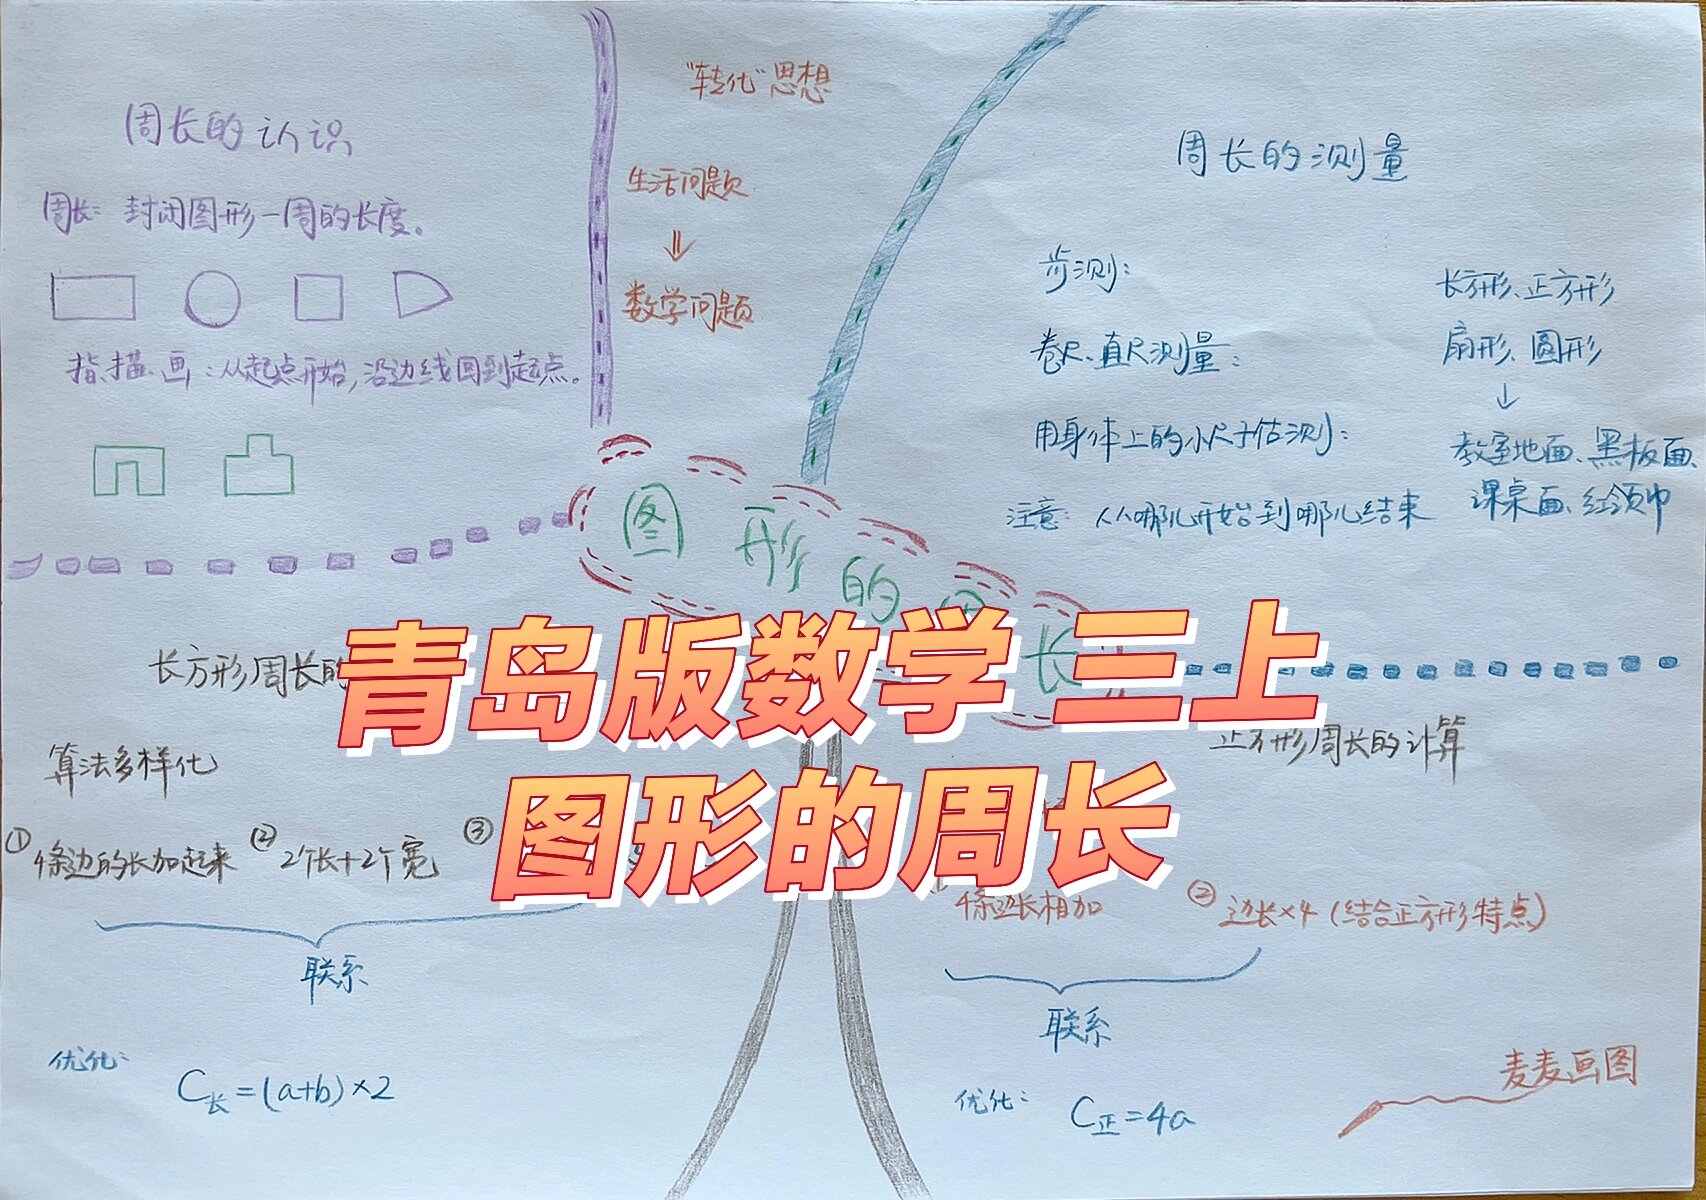 周长的认识
周长：封闭图形一周的长度。
指、描、画：从起点开始，沿边线回到起点。
"转化"思想
生活问题
⇓
数学问题
周长的测量
步测：
卷尺、直尺测量：
用身体上的小尺子估测：
注意：从哪儿开始到哪儿结束
长方形、正方形
扇形、圆形
↓
教室地面、黑板面、
课桌面、红领巾
图形的
长
青岛版数学 三上
图形的周长
长方形周长的
算法多样化
① 4条边的长加起来 ② 2个长+2个宽 ③
联系
优化：
C长=(a+b)×2
正方形周长的计算
4条边长相加 ② 边长×4（结合正方形特点）
联系
优化：
C正=4a
麦麦画图